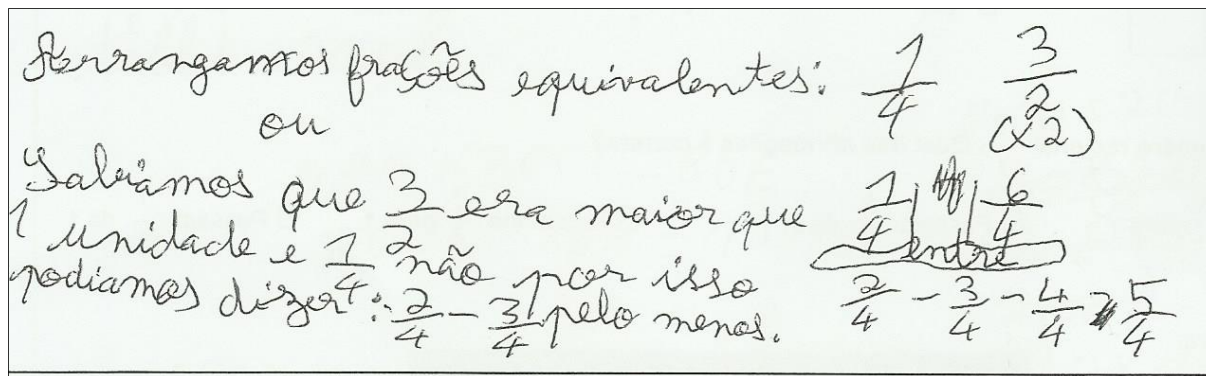 Arrangamos frações equivalentes: 1/4 3/2 (x2)
ou
Sabiamos que 3/2 era maior que
1 unidade e 1/4 não por isso
podiamos dizer: 2/4 - 3/4 pelo menos.
1/4 | | 6/4
entre
2/4 - 3/4 - 4/4 5/4